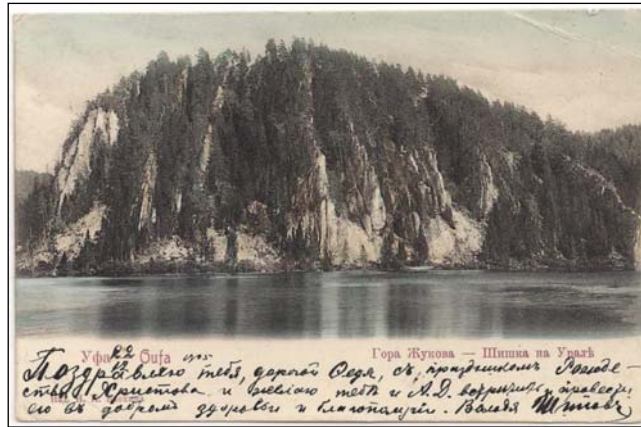 Уфа 22/12 Oufa 1905
Гора Жукова — Шишка на Уралѣ
Поздравляю тебя, дорогой Ѳедя, съ праздникомъ Рожде-
ства Христова и желаю тебѣ и А.Д. встрѣтить и провести
его въ добромъ здоровьи и благополучіи. Володя